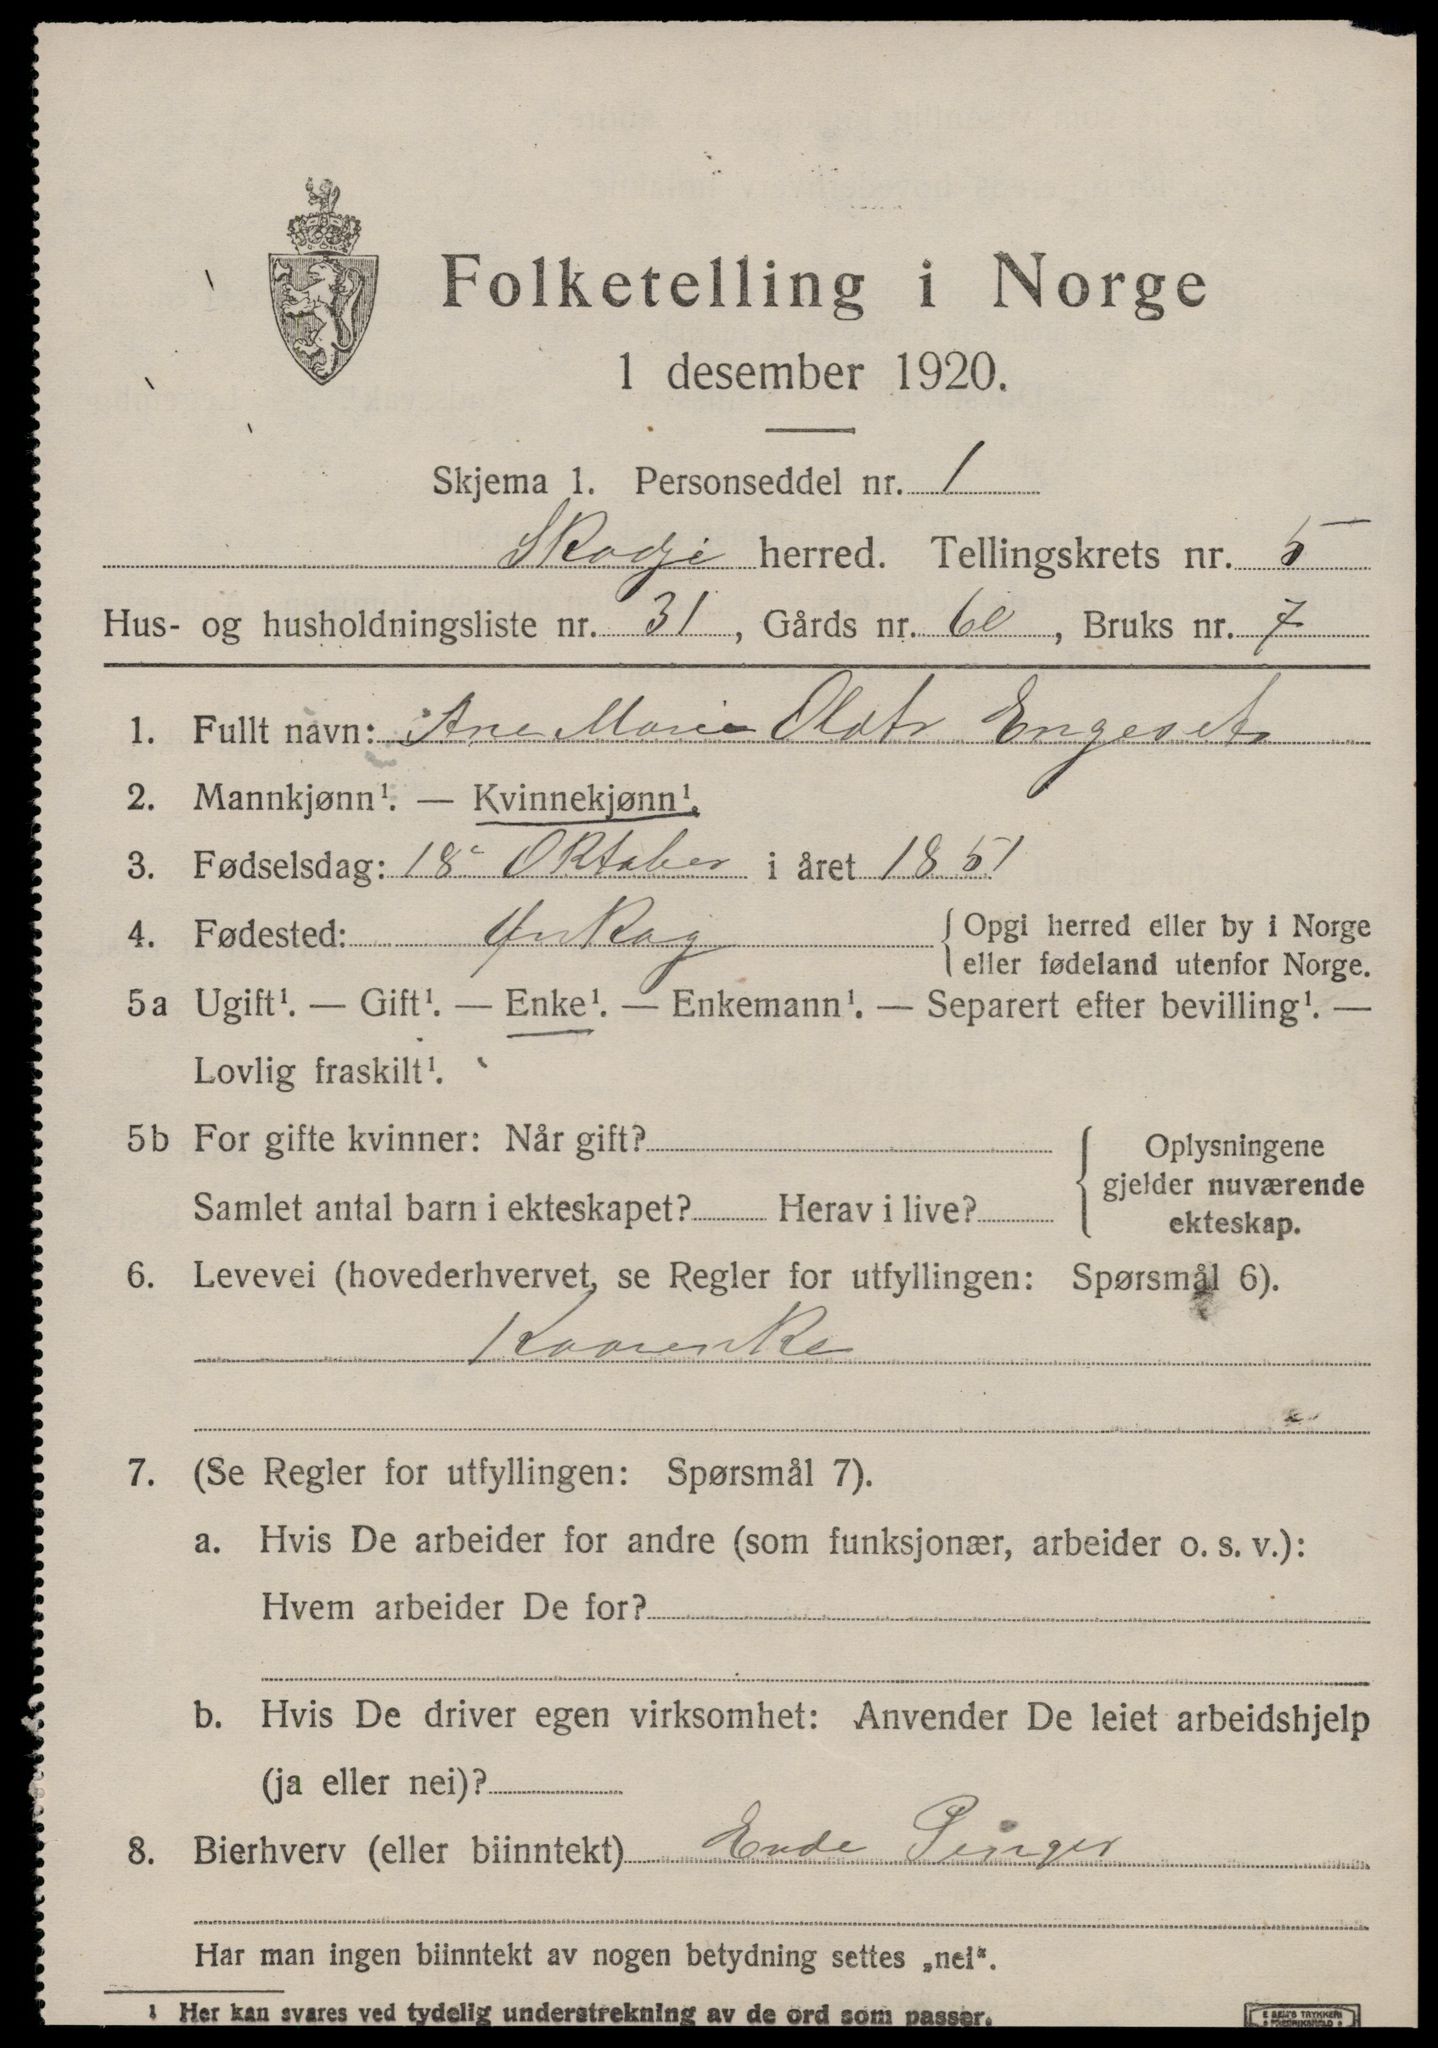 Folketelling i Norge
1 desember 1920.
Skjema 1. Personseddel nr. 1
Skodje herred. Tellingskrets nr. 5
Hus- og husholdningsliste nr. 31, Gårds nr. 60, Bruks nr. 7
1. Fullt navn: Ane Marie Oldtr Engeset
2. Mannkjønn¹. — Kvinnekjønn¹.
3. Fødselsdag: 18 Oktober i året 1851
4. Fødested: Ørskog { Opgi herred eller by i Norge
eller fødeland utenfor Norge.
5a Ugift¹. — Gift¹. — Enke¹. — Enkemann¹. — Separert efter bevilling¹. —
Lovlig fraskilt¹.
5b For gifte kvinner: Når gift? { Oplysningene
gjelder nuværende
Samlet antal barn i ekteskapet? Herav i live? ekteskap.
6. Levevei (hovederhvervet, se Regler for utfyllingen: Spørsmål 6).
Kaarenke
7. (Se Regler for utfyllingen: Spørsmål 7).
a. Hvis De arbeider for andre (som funksjonær, arbeider o. s. v.):
Hvem arbeider De for?
b. Hvis De driver egen virksomhet: Anvender De leiet arbeidshjelp
(ja eller nei)?
8. Bierhverv (eller biinntekt) Penger
Har man ingen biinntekt av nogen betydning settes „nei“.
¹ Her kan svares ved tydelig understrekning av de ord som passer.